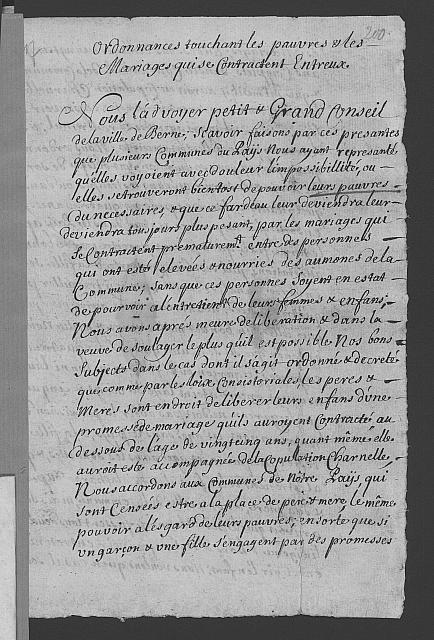 200
Ordonnances touchant les pauvres & les
Mariages qui se Contractent Entreux.
Nous ladvoyer petit & Grand Conseil
de la ville de Berne, scavoir faisons par ces presantes
que plusieurs Communes du Païs Nous ayant represanté
qu'elles voyoient avec douleur limpossibillité, ou
elles se trouveront bientost de pouvoir leurs pauvres
du necessaires, & que ce fardeau leur deviendra leur
deviendra tousjours plus pesant, par les mariages qui
se Contractent prematuremt entre des personnes
qui ont esté elevées & nourries des aumones de la
Commune, sans que ces personnes soyent en estat
de pourvoir al'entretien de leurs femmes & enfans,
Nous avons apres meure deliberation & dans la
veuve de soulager le plus quil est possible Nos bons
Subjects dans le cas dont il sagit ordonné & decreté
que comme par les loix Consistoriales les peres &
Meres sont endroit de liberer leurs enfans dune
promesse de mariage quils auroyent Contracté au
dessous de lage de vingtcinq ans, quant même elle
auroit esté accompagnée de la Copulation Charnelle,
Nous accordons aux Communes de Nôtre Païs, qui
sont Censées estre a la place de pere & mere le même
pouvoir a legard de leurs pauvres, ensorte que si
un garçon & une fille s'engagent par des promesses